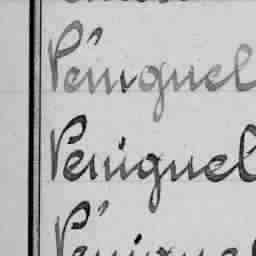 Péniguel
Péniguel